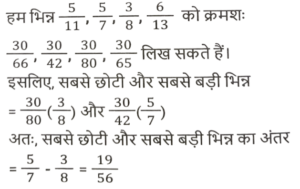 हम भिन्न 5/11, 5/7, 3/8, 6/13 को क्रमशः
30/66, 30/42, 30/80, 30/65 लिख सकते हैं।
इसलिए, सबसे छोटी और सबसे बड़ी भिन्न
= 30/80(3/8) और 30/42(5/7)
अतः, सबसे छोटी और सबसे बड़ी भिन्न का अंतर
= 5/7 - 3/8 = 19/56